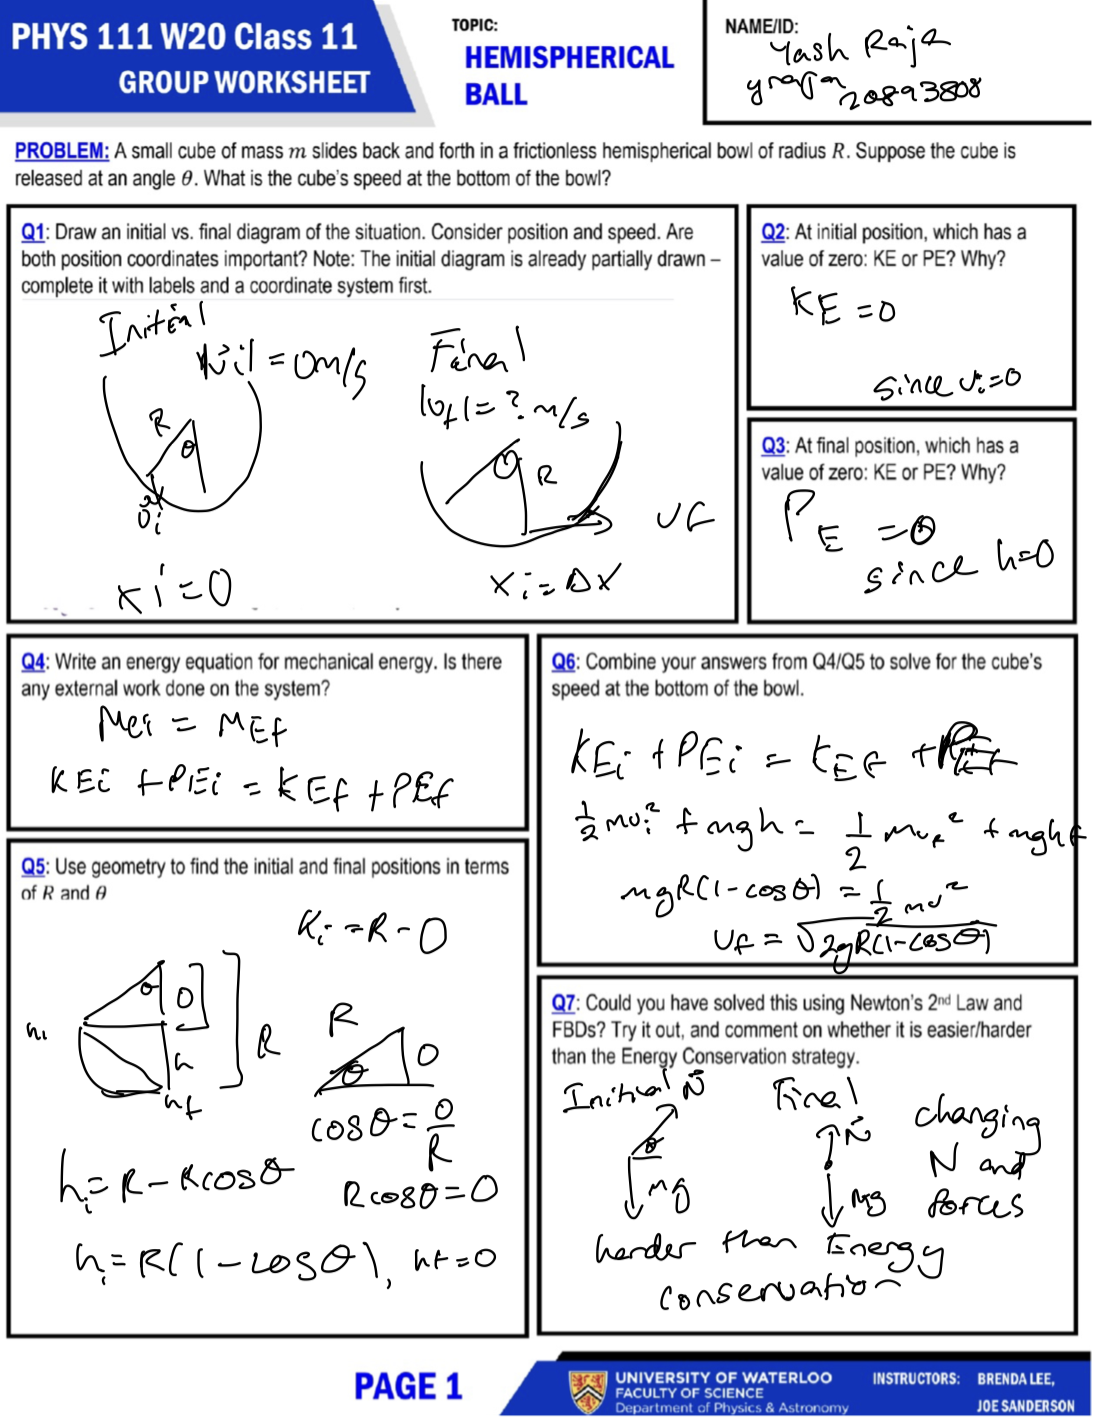 PHYS 111 W20 Class 11
GROUP WORKSHEET
TOPIC:
HEMISPHERICAL
BALL
NAME/ID:
Yash Raja
20893808
PROBLEM: A small cube of mass m slides back and forth in a frictionless hemispherical bowl of radius R. Suppose the cube is
released at an angle θ. What is the cube's speed at the bottom of the bowl?
Q1: Draw an initial vs. final diagram of the situation. Consider position and speed. Are
both position coordinates important? Note: The initial diagram is already partially drawn –
complete it with labels and a coordinate system first.
Initial
|vi| = 0m/s
R
θ
vi
xi = 0
Final
|vf| = ? m/s
R
vf
xi = Δx
Q2: At initial position, which has a
value of zero: KE or PE? Why?
KE = 0
since vi = 0
Q3: At final position, which has a
value of zero: KE or PE? Why?
PE = 0
since h=0
Q4: Write an energy equation for mechanical energy. Is there
any external work done on the system?
MEi = MEf
KEi + PEi = KEf + PEf
Q5: Use geometry to find the initial and final positions in terms
of R and θ
Ki = R - O
θ
O
hi
h
R
hf
R
θ
O
cosθ = O/R
Rcosθ = O
hi = R - Rcosθ
hi = R(1 - cosθ), hf = 0
Q6: Combine your answers from Q4/Q5 to solve for the cube's
speed at the bottom of the bowl.
KEi + PEi = KEf + PEf
1/2 mvi² + mgh = 1/2 mvf² + mghf
mgR(1 - cosθ) = 1/2 mv²
vf = √2gR(1-cosθ)
Q7: Could you have solved this using Newton's 2nd Law and
FBDs? Try it out, and comment on whether it is easier/harder
than the Energy Conservation strategy.
Initial
N
θ
mg
Final
N
mg
changing
N and
forces
harder than Energy
conservation
PAGE 1
UNIVERSITY OF WATERLOO
FACULTY OF SCIENCE
Department of Physics & Astronomy
INSTRUCTORS: BRENDA LEE,
JOE SANDERSON